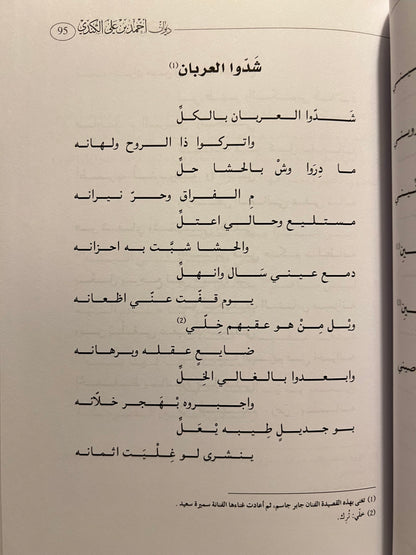 ديوان أحمد بن علي الكندي 95
شَدّوا العربان (1)
شَـدّوا العـربان بالـكـلِّ
واتـركـوا ذا الـروح ولـهـانـه
ما دِرَوا وشْ بـالـحـشـا حـلِّ
مِ الـفـراق وحـرّ نـيـرانـه
مستلـيـع وحـالـي اعـتـلِّ
والحشا شبَّـت به احزانـه
دمـع عـيـنـي سَـال وانـهـلِّ
يـوم قـفّـت عـنّـي اظـعـانـه
ويْـل مِـنْ هـو عـقـبـهـم خِـلّـي (2)
ضـايـعٍ عـقـلـه وبـرهـانـه
وابـعـدوا بـالـغـالـي الخِـلِّ
واجـبـروه بْـهـجـر خـلّانـه
بـو جـديـلٍ طـيـبـه يْـعَـلِّ
يـنـشـرى لـو غِـلْـيَـت اثـمـانـه
(1) تغنى بهذه القصيدة الفنان جابر جاسم، ثم أعادت غناءها الفنانة سميرة سعيد.
(2) خلي: تُرك.